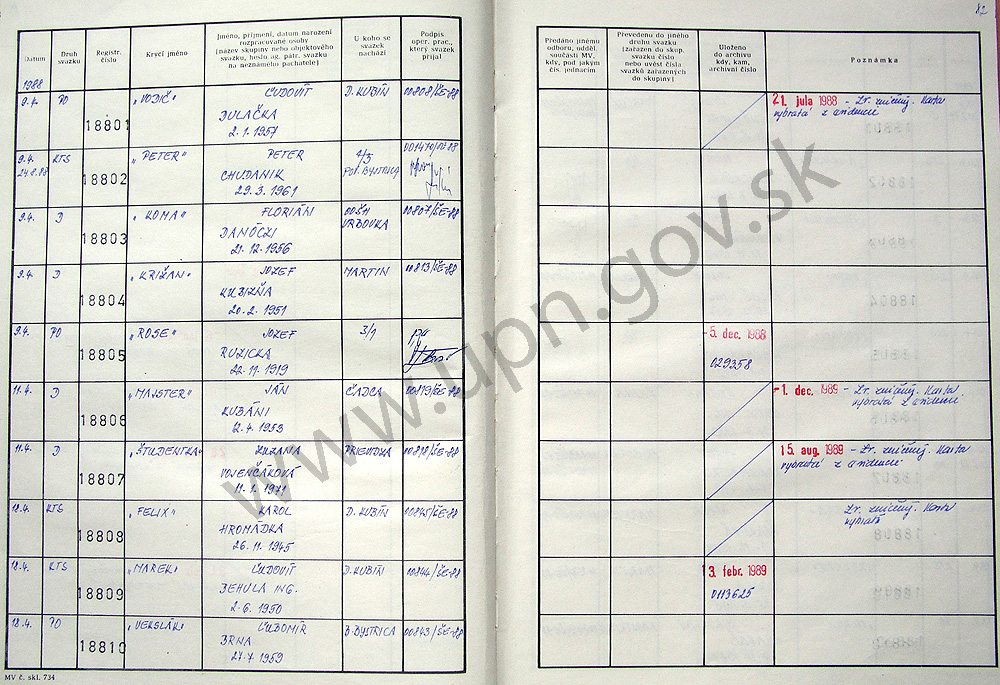 82
Datum
Druh svazku
Registr. číslo
Krycí jméno
Jméno, příjmení, datum narození rozpracované osoby (název skupiny nebo objektového svazku, heslo ag. pátr. svazku na neznámého pachatele)
U koho se svazek nachází
Podpis oper. prac., který svazek přijal
Předáno jinému odboru, odděl. součásti MV, kdy, pod jakým čís. jednacím
Převedeno do jiného druhu svazku (zařazen do skup. svazku číslo nebo uvést čísla svazků zařazených do skupiny)
Uloženo do archivu kdy, kam, archivní číslo
Poznámka
1988
9.4. PO 18801 „VODIČ" ĽUDOVÍT D. KUBÍN 00808/ŠE-88 21. júla 1988 - Zv. zničený. Karta
DULAČKA vybratá z evidencií
2.1.1957
9.4. KTS 18802 „PETER" PETER 4/3
CHUDANIK POV. BYSTRICA
29.3.1961
9.4. D 18803 „KOMA" FLORIÁN 00807/ŠE-88
DANÓCZI
21.12.1956
9.4. D 18804 „KRIŽAN" JOZEF MARTIN 00813/ŠE-88
20.2.1951
9.4. PO 18805 „ROSE" JOZEF 3/1 5. dec. 1988
RUZICKA 029358
22.11.1919
11.4. D 18806 „MAJSTER" JÁN ČADCA -1. dec. 1989 - Zv. zničený. Karta
KUBÁNI vybratá z evidencií
12.4.1953
11.4. D 18807 „ŠTUDENTKA" ZUZANA PRIEVIDZA 15. aug. 1989 - Zv. zničený. Karta
VOJENČÁKOVÁ vybratá z evidencií
18.4. KTS 18808 „FELIX" KAROL D. KUBÍN 00845/ŠE-88 Zv. zničený. Karta
HROMÁDKA vybratá
26.11.1945
18.4. KTS 18809 „MAREK" ĽUDOVÍT D. KUBÍN 00844/ŠE-88 13. febr. 1989
BEHULA ING. 0113625
2.6.1950
18.4. PO 18810 „VEKSLÁK" ĽUBOMÍR B. BYSTRICA 00843/ŠE-88
BRNA
27.7.1959
MV č. skl. 734
www.upn.gov.sk